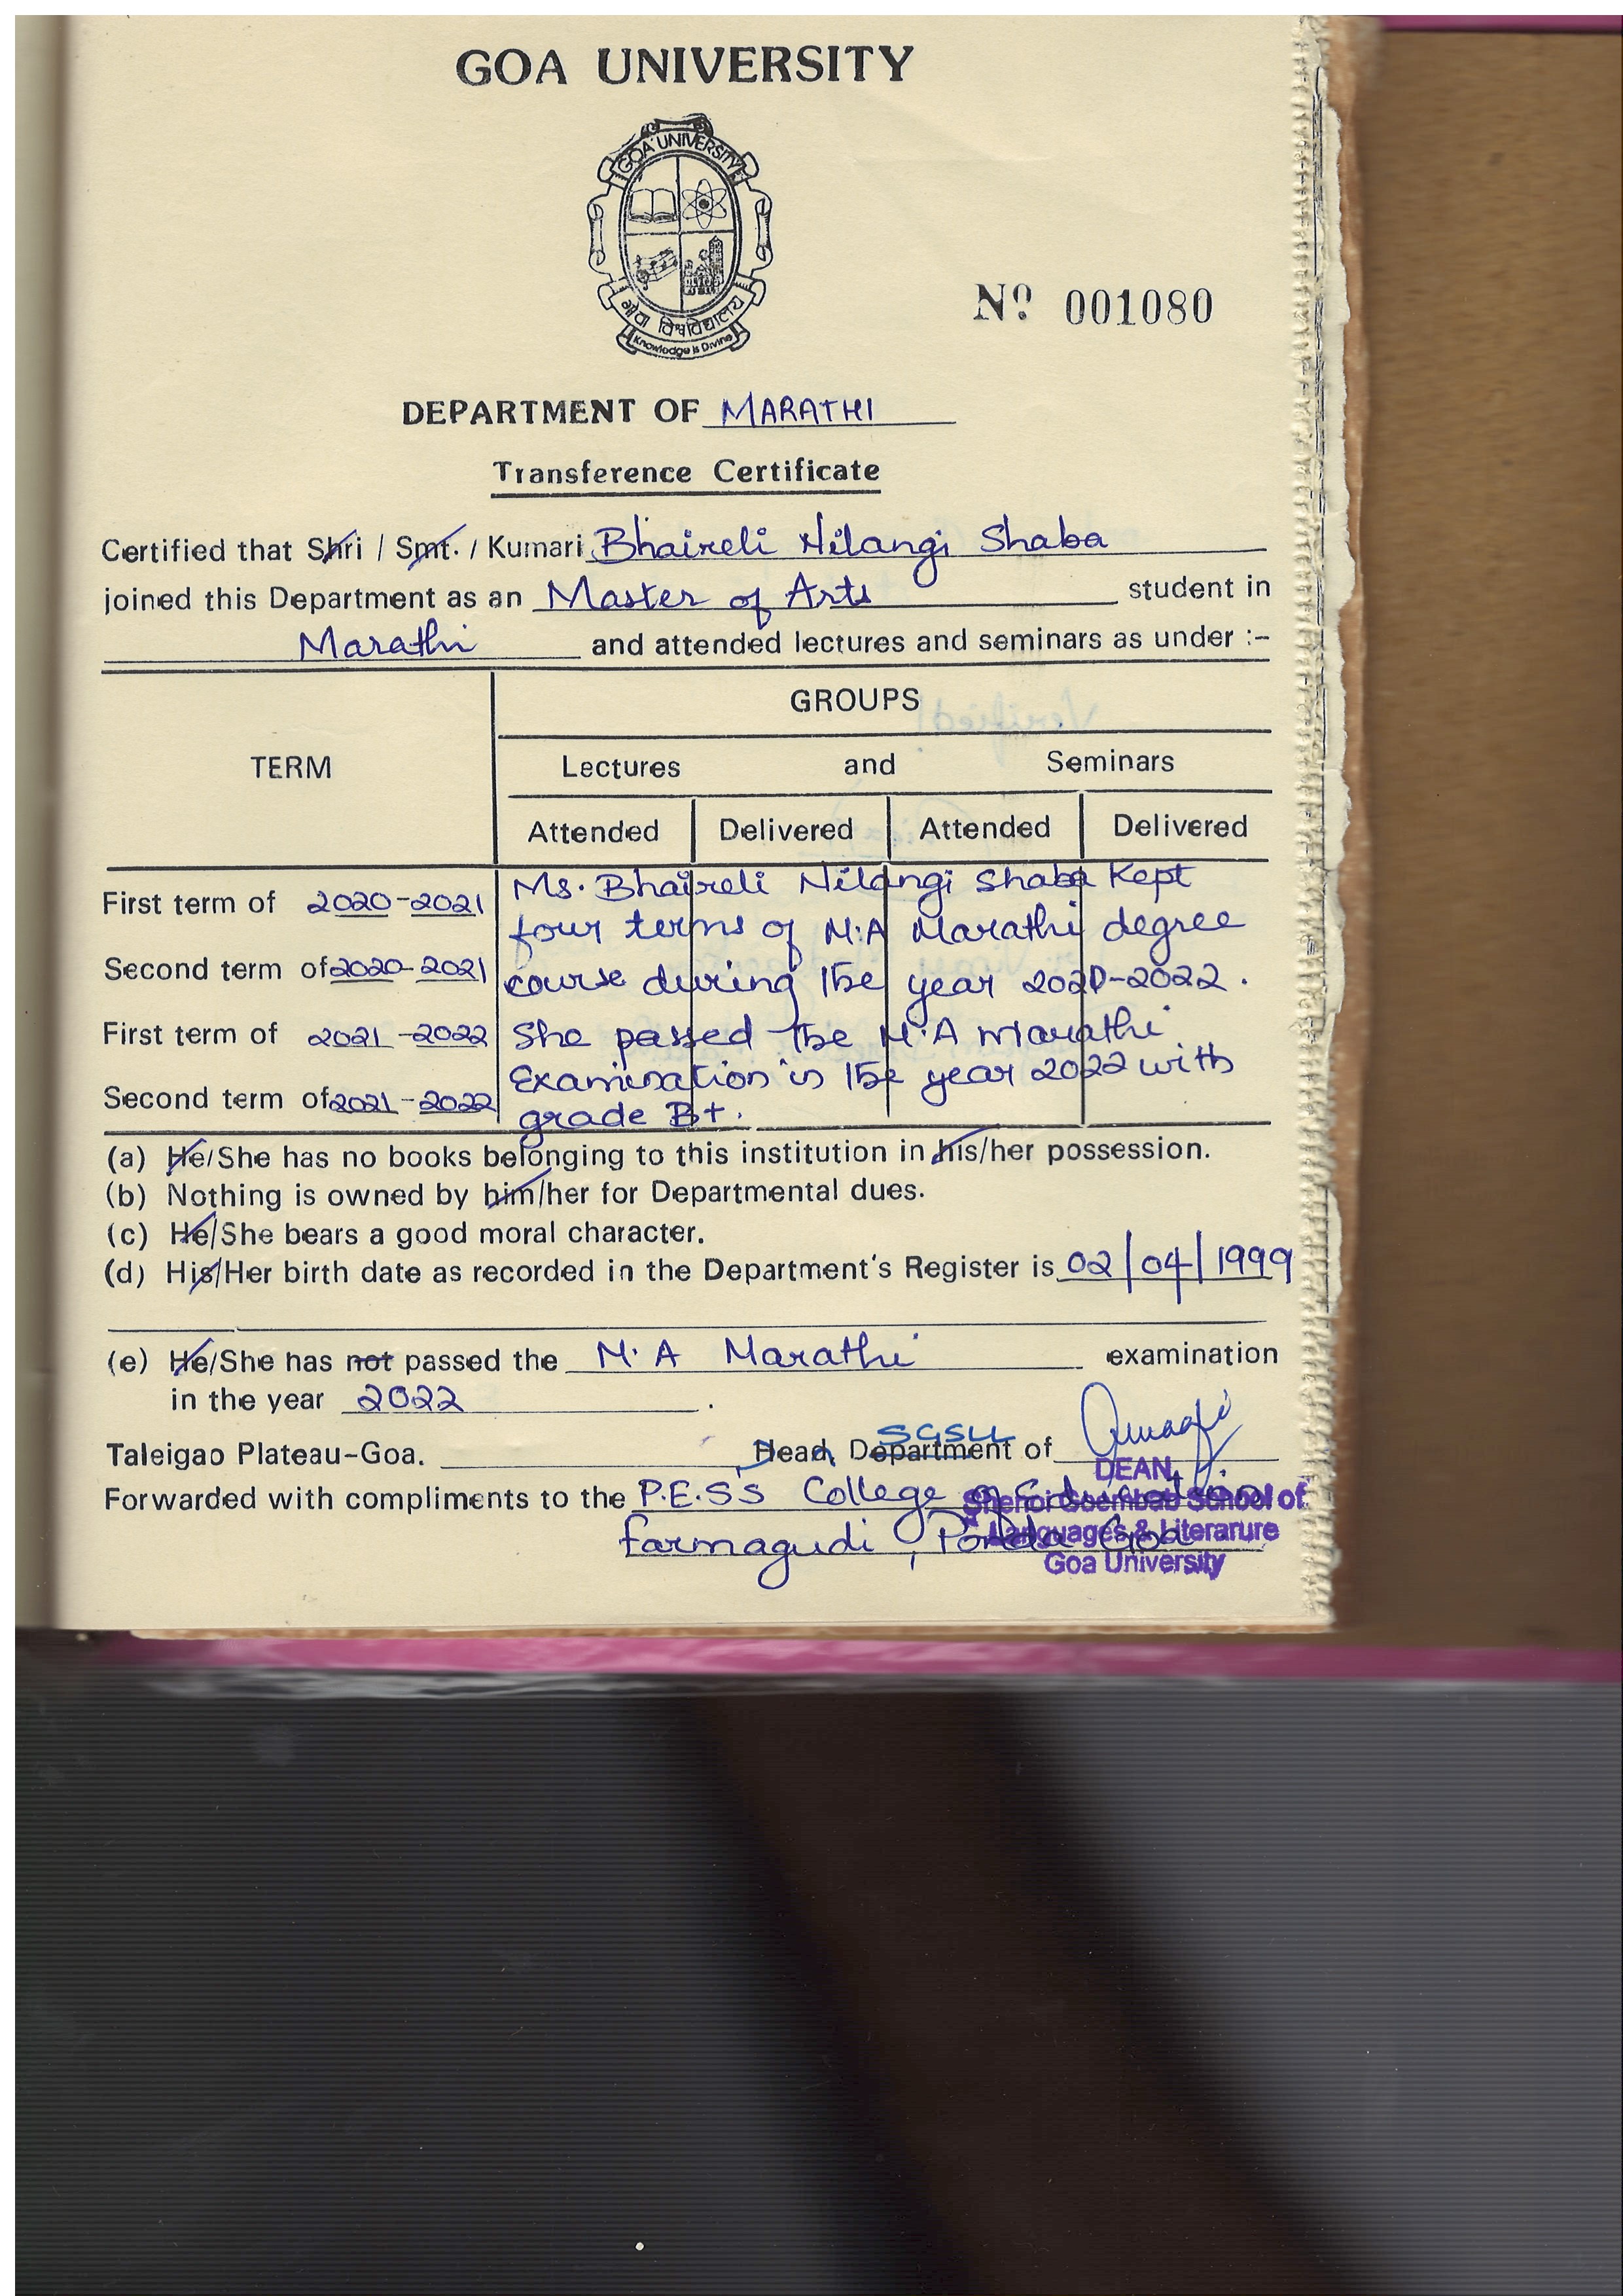 GOA UNIVERSITY
GOA UNIVERSITY
गोंवा विश्वविद्यालय
Knowledge is Divine
Nº 001080
DEPARTMENT OF MARATHI
Transference Certificate
Certified that Shri / Smt. / Kumari Bhaireli Nilangi Shaba
joined this Department as an Master of Arts student in
Marathi and attended lectures and seminars as under :-
GROUPS
TERM
Lectures and Seminars
Attended Delivered Attended Delivered
First term of 2020-2021
Second term of 2020-2021
First term of 2021-2022
Second term of 2021-2022
Ms. Bhaireli Nilangi Shaba Kept
four terms of M.A Marathi degree
course during the year 2020-2022.
She passed the M.A Marathi
Examination in the year 2022 with
grade B+.
(a) He/She has no books belonging to this institution in his/her possession.
(b) Nothing is owned by him/her for Departmental dues.
(c) He/She bears a good moral character.
(d) His/Her birth date as recorded in the Department's Register is 02/04/1999
(e) He/She has not passed the M.A Marathi examination
in the year 2022.
SGSLL
Taleigao Plateau-Goa. Head, Department of
DEAN,
Forwarded with compliments to the P.E.S's College of Education
Shenoi Goembab School of
farmagudi, Ponda Goa
Languages & Literarure
Goa University